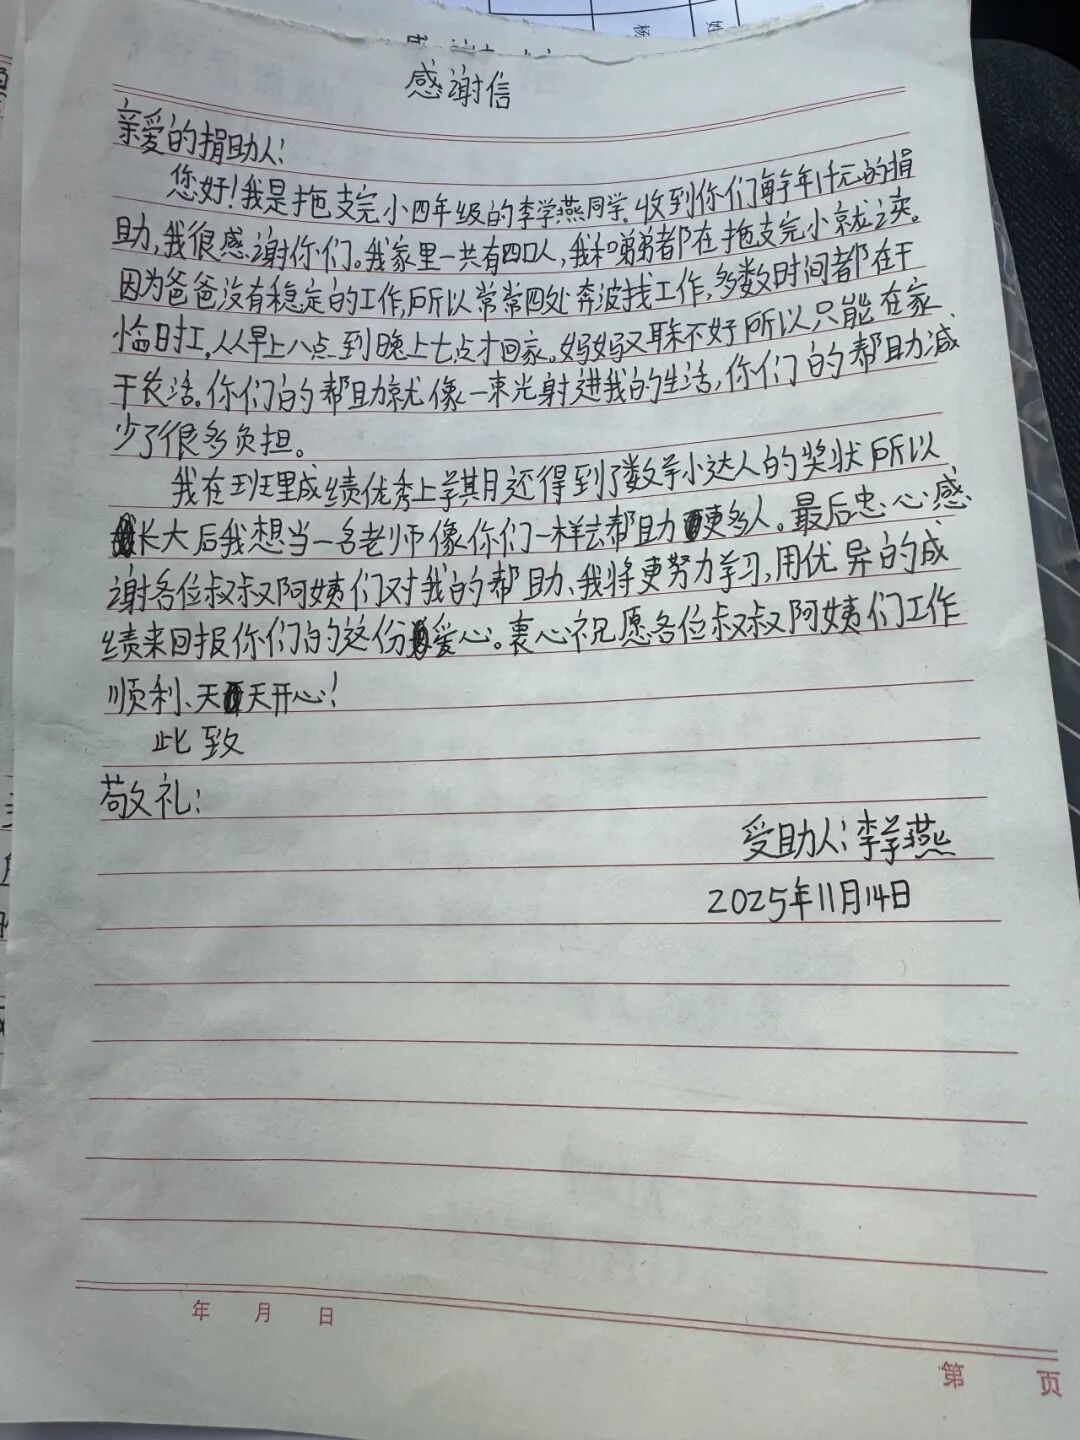 感谢信
亲爱的捐助人：
您好！我是拖支完小四年级的李学燕同学。收到你们每年1仟元的捐
助，我很感谢你们。我家里一共有四口人，我和弟弟都在拖支完小就读。
因为爸爸没有稳定的工作，所以常常四处奔波找工作，多数时间都在干
临时工，从早上八点到晚上七点才回家。妈妈又耳朵不好所以只能在家
干农活。你们的帮助就像一束光射进我的生活，你们的帮助减
少了很多负担。
我在班里成绩优秀上学期还得到了数学小达人的奖状所以
长大后我想当一名老师像你们一样去帮助更多人。最后忠心感
谢各位叔叔阿姨们对我的帮助、我将更努力学习，用优异的成
绩来回报你们的这份爱心。衷心祝愿各位叔叔阿姨们工作
顺利、天天开心！
此致
敬礼：
受助人：李学燕
2025年11月14日
年 月 日
第 页